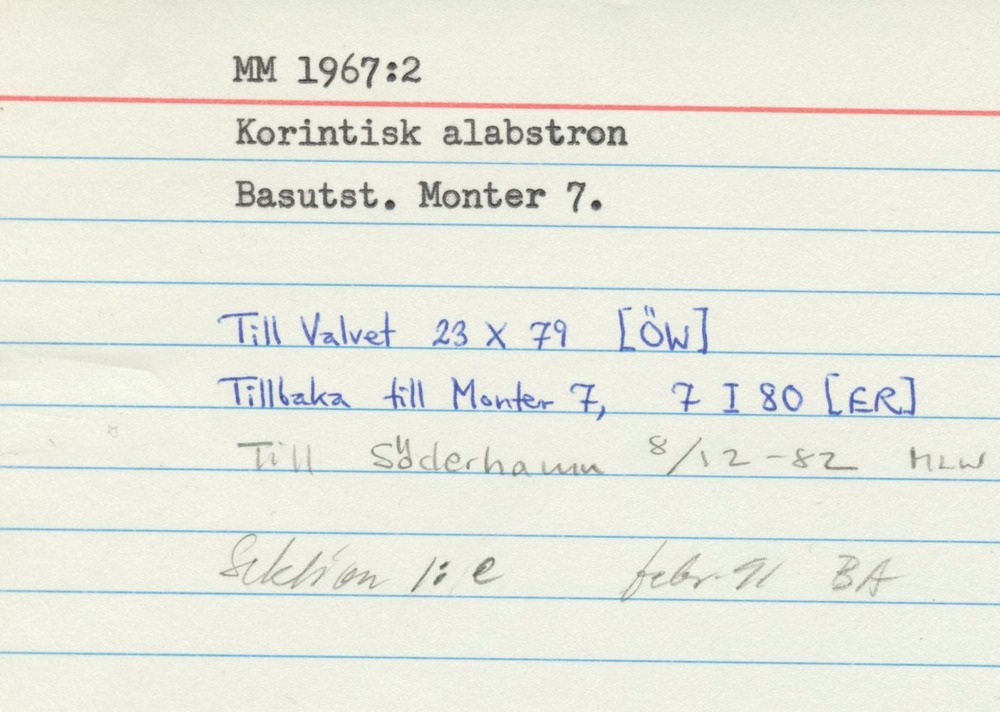 MM 1967:2
Korintisk alabstron
Basutst. Monter 7.
Till Valvet 23 X 79 [ÖW]
Tillbaka till Monter 7, 7 I 80 [ER]
Till Söderhamn 8/12-82 MLW
Sektion 1:e febr. 91 BA